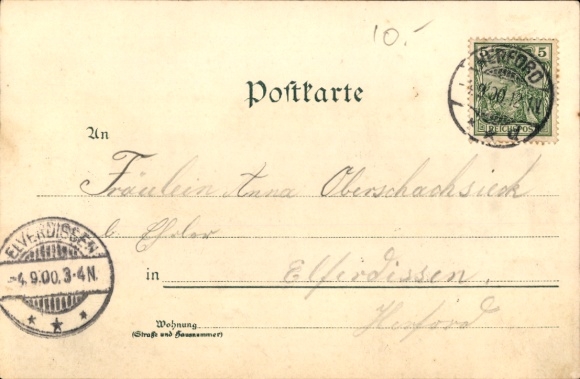 10.-
5 5
REICHSPOST
HERFORD
Postkarte
An
Fräulein Anna Oberschachsiek
b.
in Elferdissen.
Herford
ELVERDISSEN
-4.9.00.3-4N.
Wohnung
(Straße und Hausnummer)